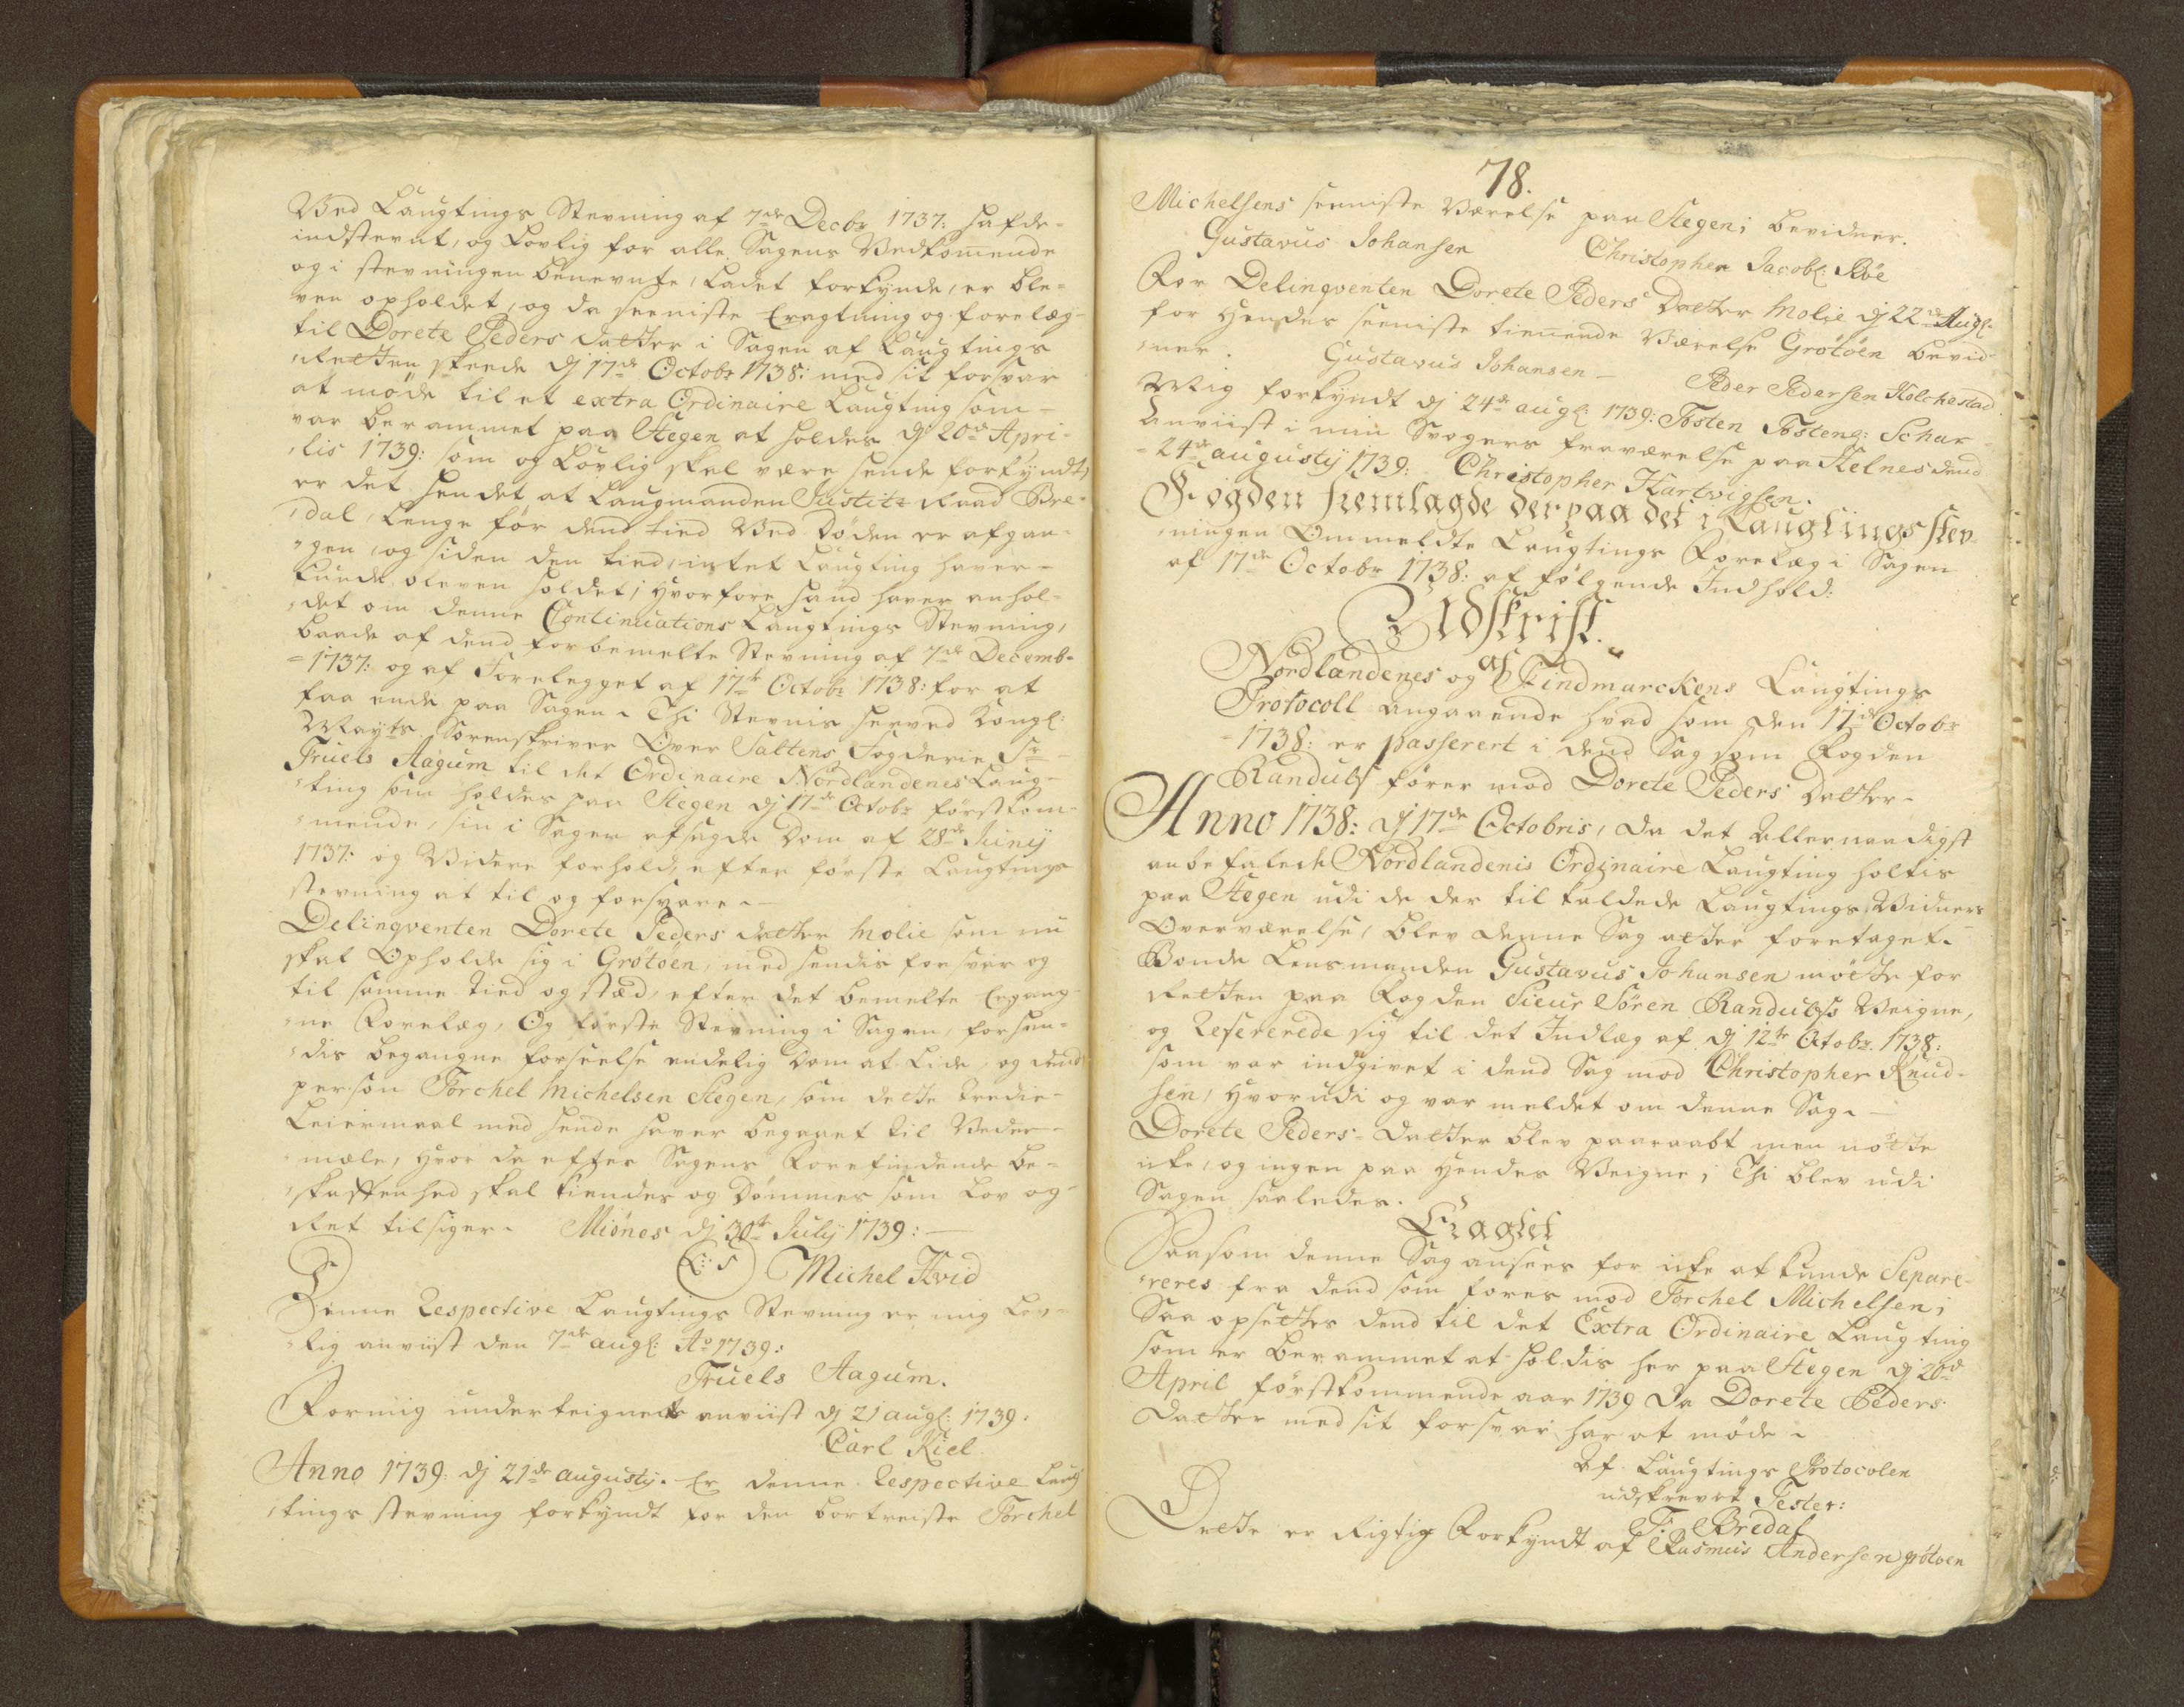 Ved Laugtings Stevning af 7de Decbr 1737: hafde
indstevnt, og Lovlig for alle Sagens Vedkommende
og i stevningen benevnte, Ladet forkynde, er ble-
ven opholdet, og da seeniste Eragtning og forelæg
til Dorete Peders datter i Sagen af Laugtings
Retten skeede dj 17de Octobr 1738: med sit forsvar
at møde til et extra Ordinaire Laugting som
var berammet paa Stegen at holdes dj 20de Apri-
lis 1739: som og Lovlig skal være hende forkyndt,
er det hendet at Laugmanden Justitz Raad Bre-
dal, Lenge før dend tied Ved Døden er afgan-
gen, og siden den tied, intet Laugting haver
kunde bleven holdet; Hvorfore hand haver anhol-
det om denne Continuations Laugtings Stevning,
baade af dend forbemelte Stevning af 7de Decemb-
1737: og af Forelegget af 17de Octobr 1738: for at
faa ende paa Sagen. Thi Stevnis herved Kongl:
Mayts Sorenskriver Over Saltens Fogderie Sr
Truels Aagum til det Ordinaire Nordlandenes Laug-
ting som holdes paa Stegen dj 17de Octobr førstkom-
mende, sin i Sagen afsagde Dom af 28de Juny
1737: og Videre forhold, efter første Laugtings
stevning at til og forsvare.
Delinqventen Dorete Peders datter Molie som nu
skal Opholde sig i Grøtöen, med hendis forsvar og
til samme tied og stæd, efter det bemelte Ergang-
ne Forelæg, Og første Stevning i Sagen, for hen-
dis begangne forseelse endelig Dom at Lide, og dend
person Torchel Michelsen Stegen, som dette tredie
Leiermaal med hende haver begaaet til Veder-
mæle, Hvor da efter Sagens Forefindende be-
skaffenhed skal kiendes og Dømmes som Lov og
Ret tilsiger. Miönes dj 30te July 1739:
(L: S) Michel Hvid
Denne Respective Laugtings Stevning er mig Lov-
lig anviist den 7de augl: Ao 1739:
Truels Aagum.
For mig underteignede anviist dj 21 augl: 1739:
Carl Kiel.
Anno 1739: dj 21de augusty. Er denne Respective Laug
tings stevning forkyndt for den bortreiste Torchel
78.
Michelsens seeniste Værelse paa Stegen; bevidner.
Gustavus Johansen Christopher Jacobs: Böe
For Delinqventen Dorete Peders Datter Molie dj 22de Augl:
for Hendes seeniste tienende Værelse Grötöen bevid-
ner. Gustavus Johansen Peder Pedersen Holchestad
Mig forkyndt dj 24de augl: 1739: Tosten Tostens: Schar
Anviist i min Svogers fraværelse paa Kelnes dend
24de augusty 1739: Christopher Hartvigsen.
Fogden fremlagde derpaa det i Laugtings stev-
ningen Ommeldte Laugtings Forelæg i Sagen
af 17de Octobr 1738: af følgende Indhold:
Udskrift.
af
Nordlandenes og Findmarckens Laugtings
Protocoll angaaende hvad som den 17de Octobr
1738: er passerert i dend Sag som Fogden
Randulf fører mod Dorete Peders Datter
Anno 1738: dj 17de Octobris, da det Allernaadigst
anbefalede Nordlandenis Ordinaire Laugting holtis
paa Stegen udi de der til kaldede Laugtings Vidners
Overværelse, blev denne Sag atter foretaget.
Bonde Lensmanden Gustavus Johansen møtte for
Retten paa Fogden Sieur Sören Randulfs Veigne,
og Refererede sig til det Indlæg af dj 12te Octobr. 1738:
som var indgivet i dend Sag mod Christopher Knud-
sen, Hvorudi og var meldet om denne Sag.
Dorete Peders datter blev paaraabt men møtte
icke, og ingen paa Hendes Veigne; Thi blev udi
Sagen saaledes.
Eragtet
Saasom denne Sag ansees for icke at kunde Separe-
reres fra dend som føres mod Torchel Michelsen;
Saa opsettes dend til det Extra Ordinaire Laugting
som er berammet at holdis her paa Stegen dj 20de
April førstkommende aar 1739 da Dorete Peders
datter med sit forsvar har at møde.
Af Laugtings Protocolen
udskrevet Tester:
T: Bredal
Dette er Rigtig Forkyndt af Rasmus Andersen grötöen